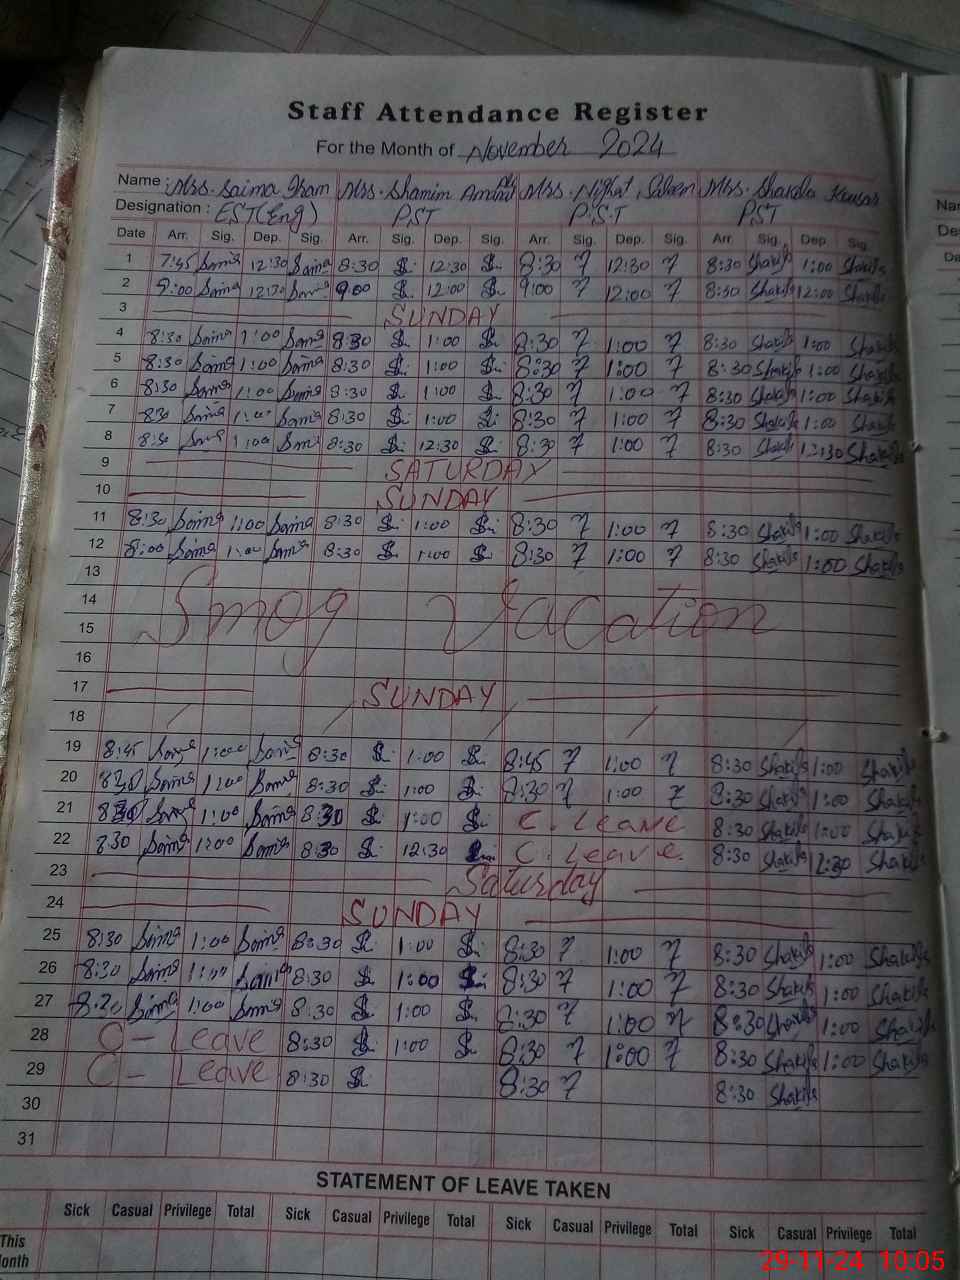 Staff Attendance Register
For the Month of November 2024
Name : Mrs. Saima Mrs. Shamim Mrs. Nighat Mrs. Shakila Kausar
Designation : EST(Eng) PST P.S.T PST
Date Arr. Sig. Dep. Sig. Arr. Sig. Dep. Sig. Arr. Sig. Dep. Sig. Arr. Sig. Dep. Sig.
1 7:45 Saima 12:30 Saima 8:30 12:30 8:30 12:30 8:30 Shakila 1:00 Shakila
2 9:00 Saima 12:30 Saima 900 12:00 9:00 12:00 8:30 Shakila 12:00 Shakila
3 SUNDAY
4 8:30 Saima 1:00 Saima 8:30 1:00 8:30 1:00 8:30 Shakila 1:00 Shakila
5 8:30 Saima 1:00 Saima 8:30 1:00 8:30 1:00 8:30 Shakila 1:00 Shakila
6 8:30 Saima 1:00 Saima 8:30 1:00 8:30 1:00 8:30 Shakila 1:00 Shakila
7 830 Saima 1:00 Saima 8:30 1:00 8:30 1:00 8:30 Shakila 1:00 Shakila
8 8:30 Saima 1:00 Saima 8:30 12:30 8:30 1:00 8:30 Shakila 12:30 Shakila
9 SATURDAY
10 SUNDAY
11 8:30 Saima 1:00 Saima 8:30 1:00 8:30 1:00 8:30 Shakila 1:00 Shakila
12 8:00 Saima 1:00 Saima 8:30 1:00 8:30 1:00 8:30 Shakila 1:00 Shakila
13
14 Smog Vacation
15
16
17 SUNDAY
18
19 8:45 Saima 1:00 Saima 8:30 1:00 8:45 1:00 8:30 Shakila 1:00 Shakila
20 830 Saima 1:00 Saima 8:30 1:00 8:30 1:00 8:30 Shakila 1:00 Shakila
21 830 Saima 1:00 Saima 8:30 1:00 C. Leave 8:30 Shakila 1:00 Shakila
22 830 Saima 1:00 Saima 8:30 12:30 C. Leave. 8:30 Shakila 12:30 Shakila
23 Saturday
24 SUNDAY
25 8:30 Saima 1:00 Saima 8:30 1:00 8:30 1:00 8:30 Shakila 1:00 Shakila
26 8:30 Saima 1:00 Saima 8:30 1:00 8:30 1:00 8:30 Shakila 1:00 Shakila
27 8:30 Saima 1:00 Saima 8:30 1:00 8:30 1:00 8:30 Shakila 1:00 Shakila
28 C - Leave 8:30 1:00 8:30 1:00 8:30 Shakila 1:00 Shakila
29 C - Leave 8:30 8:30 8:30 Shakila
30
31
STATEMENT OF LEAVE TAKEN
Sick Casual Privilege Total Sick Casual Privilege Total Sick Casual Privilege Total Sick Casual Privilege Total
This
29-11-24 10:05